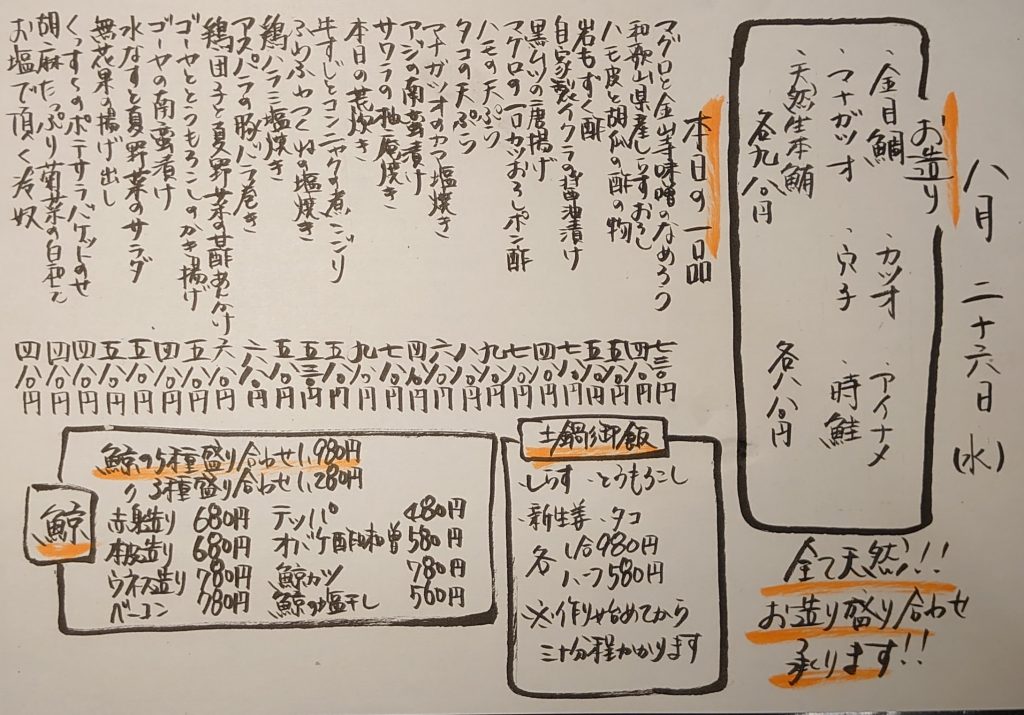 八月二十六日(水)
お造り
・金目鯛 ・カツオ ・アイナメ
・マナガツオ ・穴子 ・時鮭
・天然生本鮪
各九八〇円
各八八〇円
全て天然!!
お造り盛り合わせ
承ります!!
本日の一品
マグロと金山寺味噌のなめろう 七三〇円
和歌山県産しらすおろし 四八〇円
ハモ皮と胡瓜の酢の物 五八〇円
岩もずく酢 五八〇円
自家製イクラの醤油漬け 七八〇円
黒ムツの唐揚げ
マグロの一口カツおろしポン酢
ハモの天ぷら
タコの天ぷら
マナガツオのカマ塩焼き
アジの南蛮漬け
サワラの柚庵焼き
本日の荒炊き
牛すじとコンニャクの煮こごり
ふわふわつくねの塩焼き
鶏ハラミ塩焼き
アスパラの豚バラ巻き
鶏団子と夏野菜の甘酢あんかけ 六八〇円
ゴーヤととうもろこしのかき揚げ 五八〇円
ゴーヤの南蛮漬け 四八〇円
水なすと夏野菜のサラダ 五八〇円
無花果の揚げ出し 五八〇円
くっすくのポテサラバゲットのせ 四八〇円
胡麻たっぷり菊菜の白和え 四八〇円
お塩で頂く冷奴 四八〇円
土鍋御飯
・しらす ・とうもろこし
・新生姜 ・タコ
各 1合980円
ハーフ580円
※作り始めてから
三十分程かかります
鯨
鯨の5種盛り合わせ1,980円
〃 3種盛り合わせ1,280円
赤身造り 680円 テッパ 480円
本皮造り 680円 オバケ酢味噌 580円
ウネス造り 780円 鯨カツ 780円
ベーコン 780円 鯨の塩干し 560円